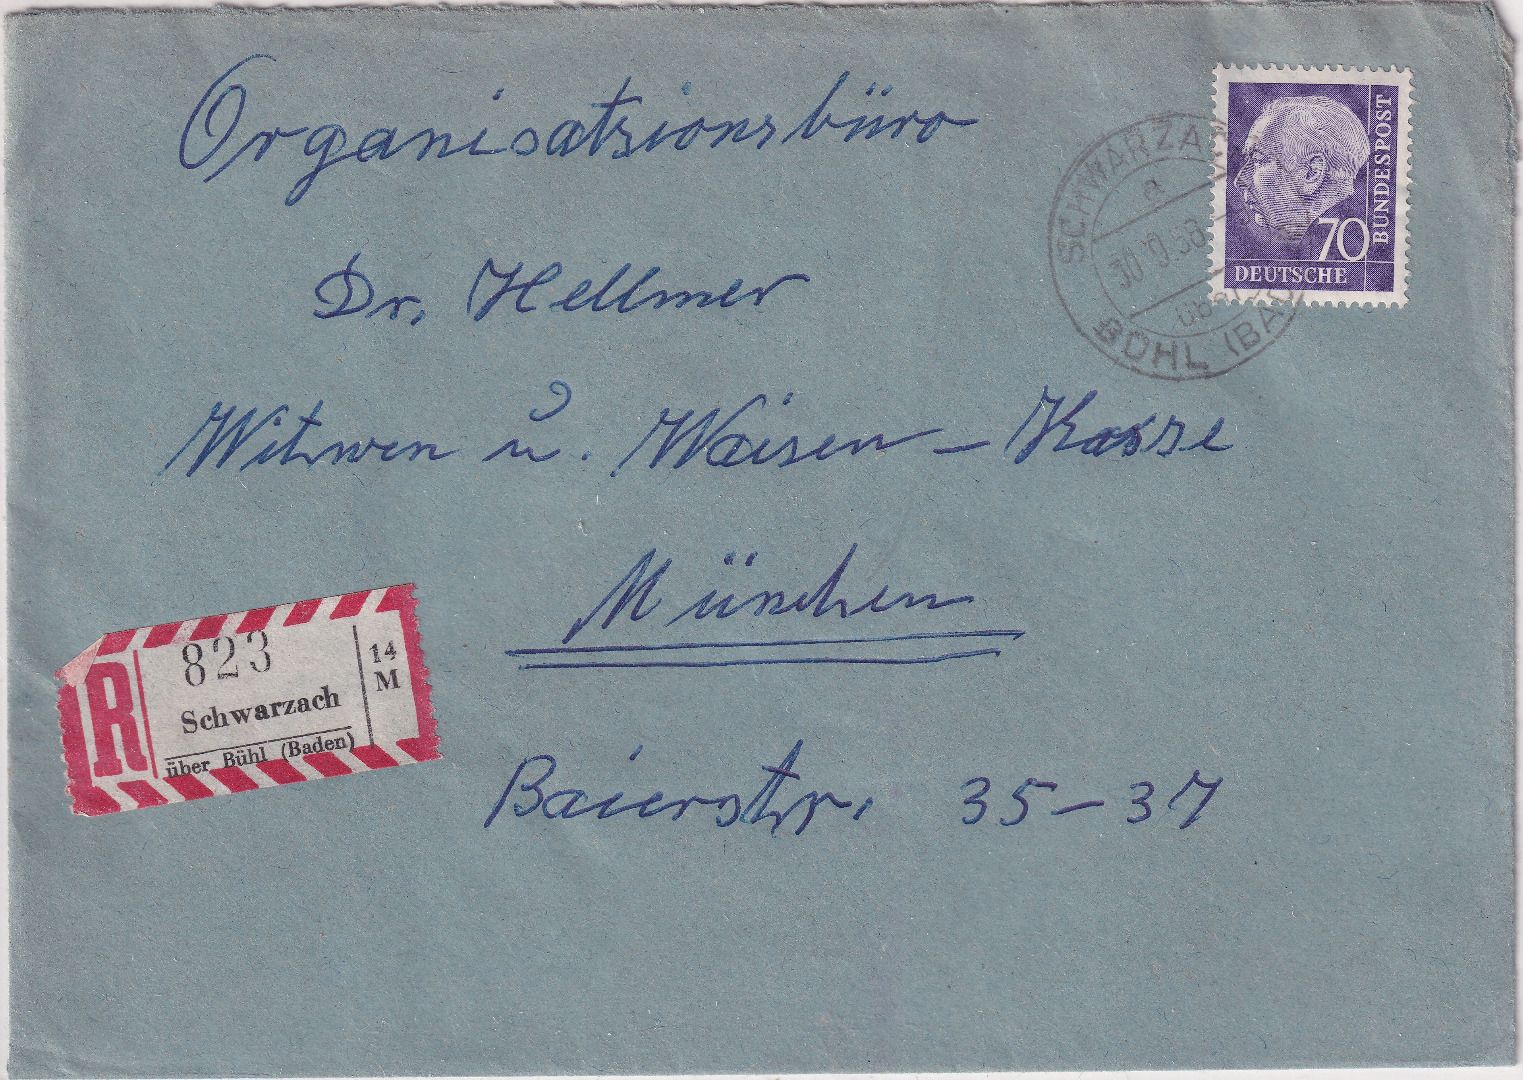 Organisationsbüro
Dr. Hellmer
Witwen u. Waisen-Kasse
München
Baierstr. 35-37
SCHWARZAC
a
30.10.58
über
BÜHL (BAD
70
DEUTSCHE
BUNDESPOST
R
823
Schwarzach
über Bühl (Baden)
14
M